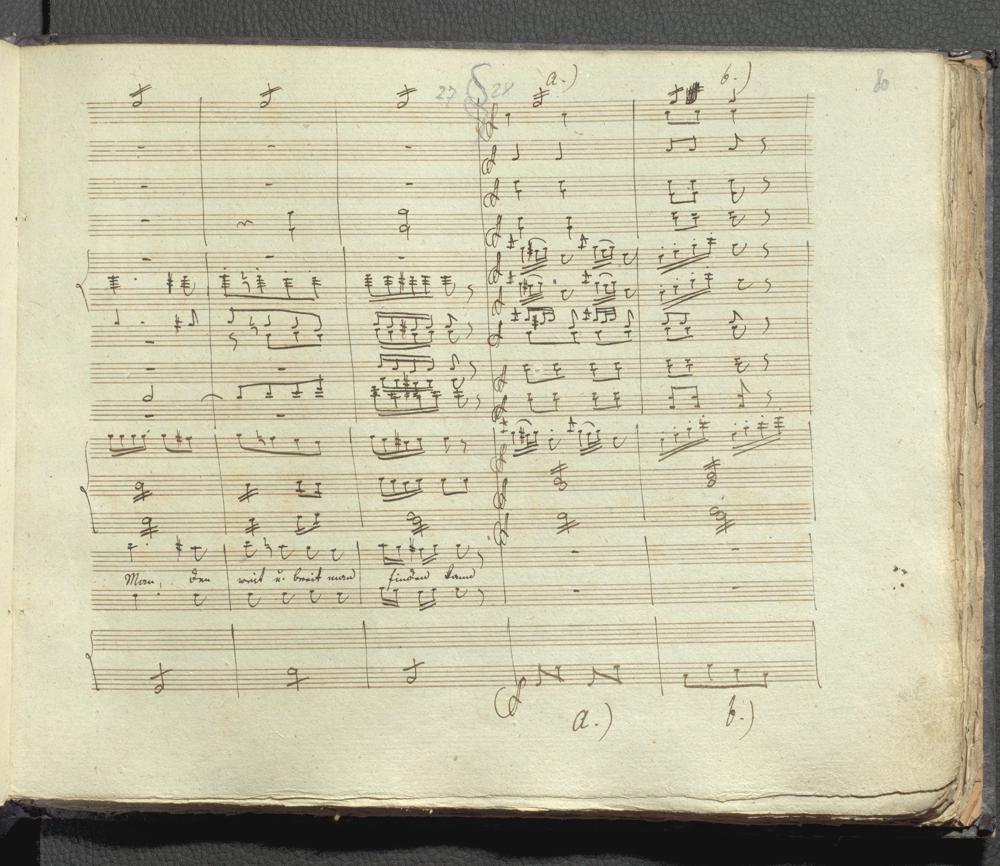 27 28 a.) b.) 80
Man, den weit u. breit man finden kann
a.) b.)